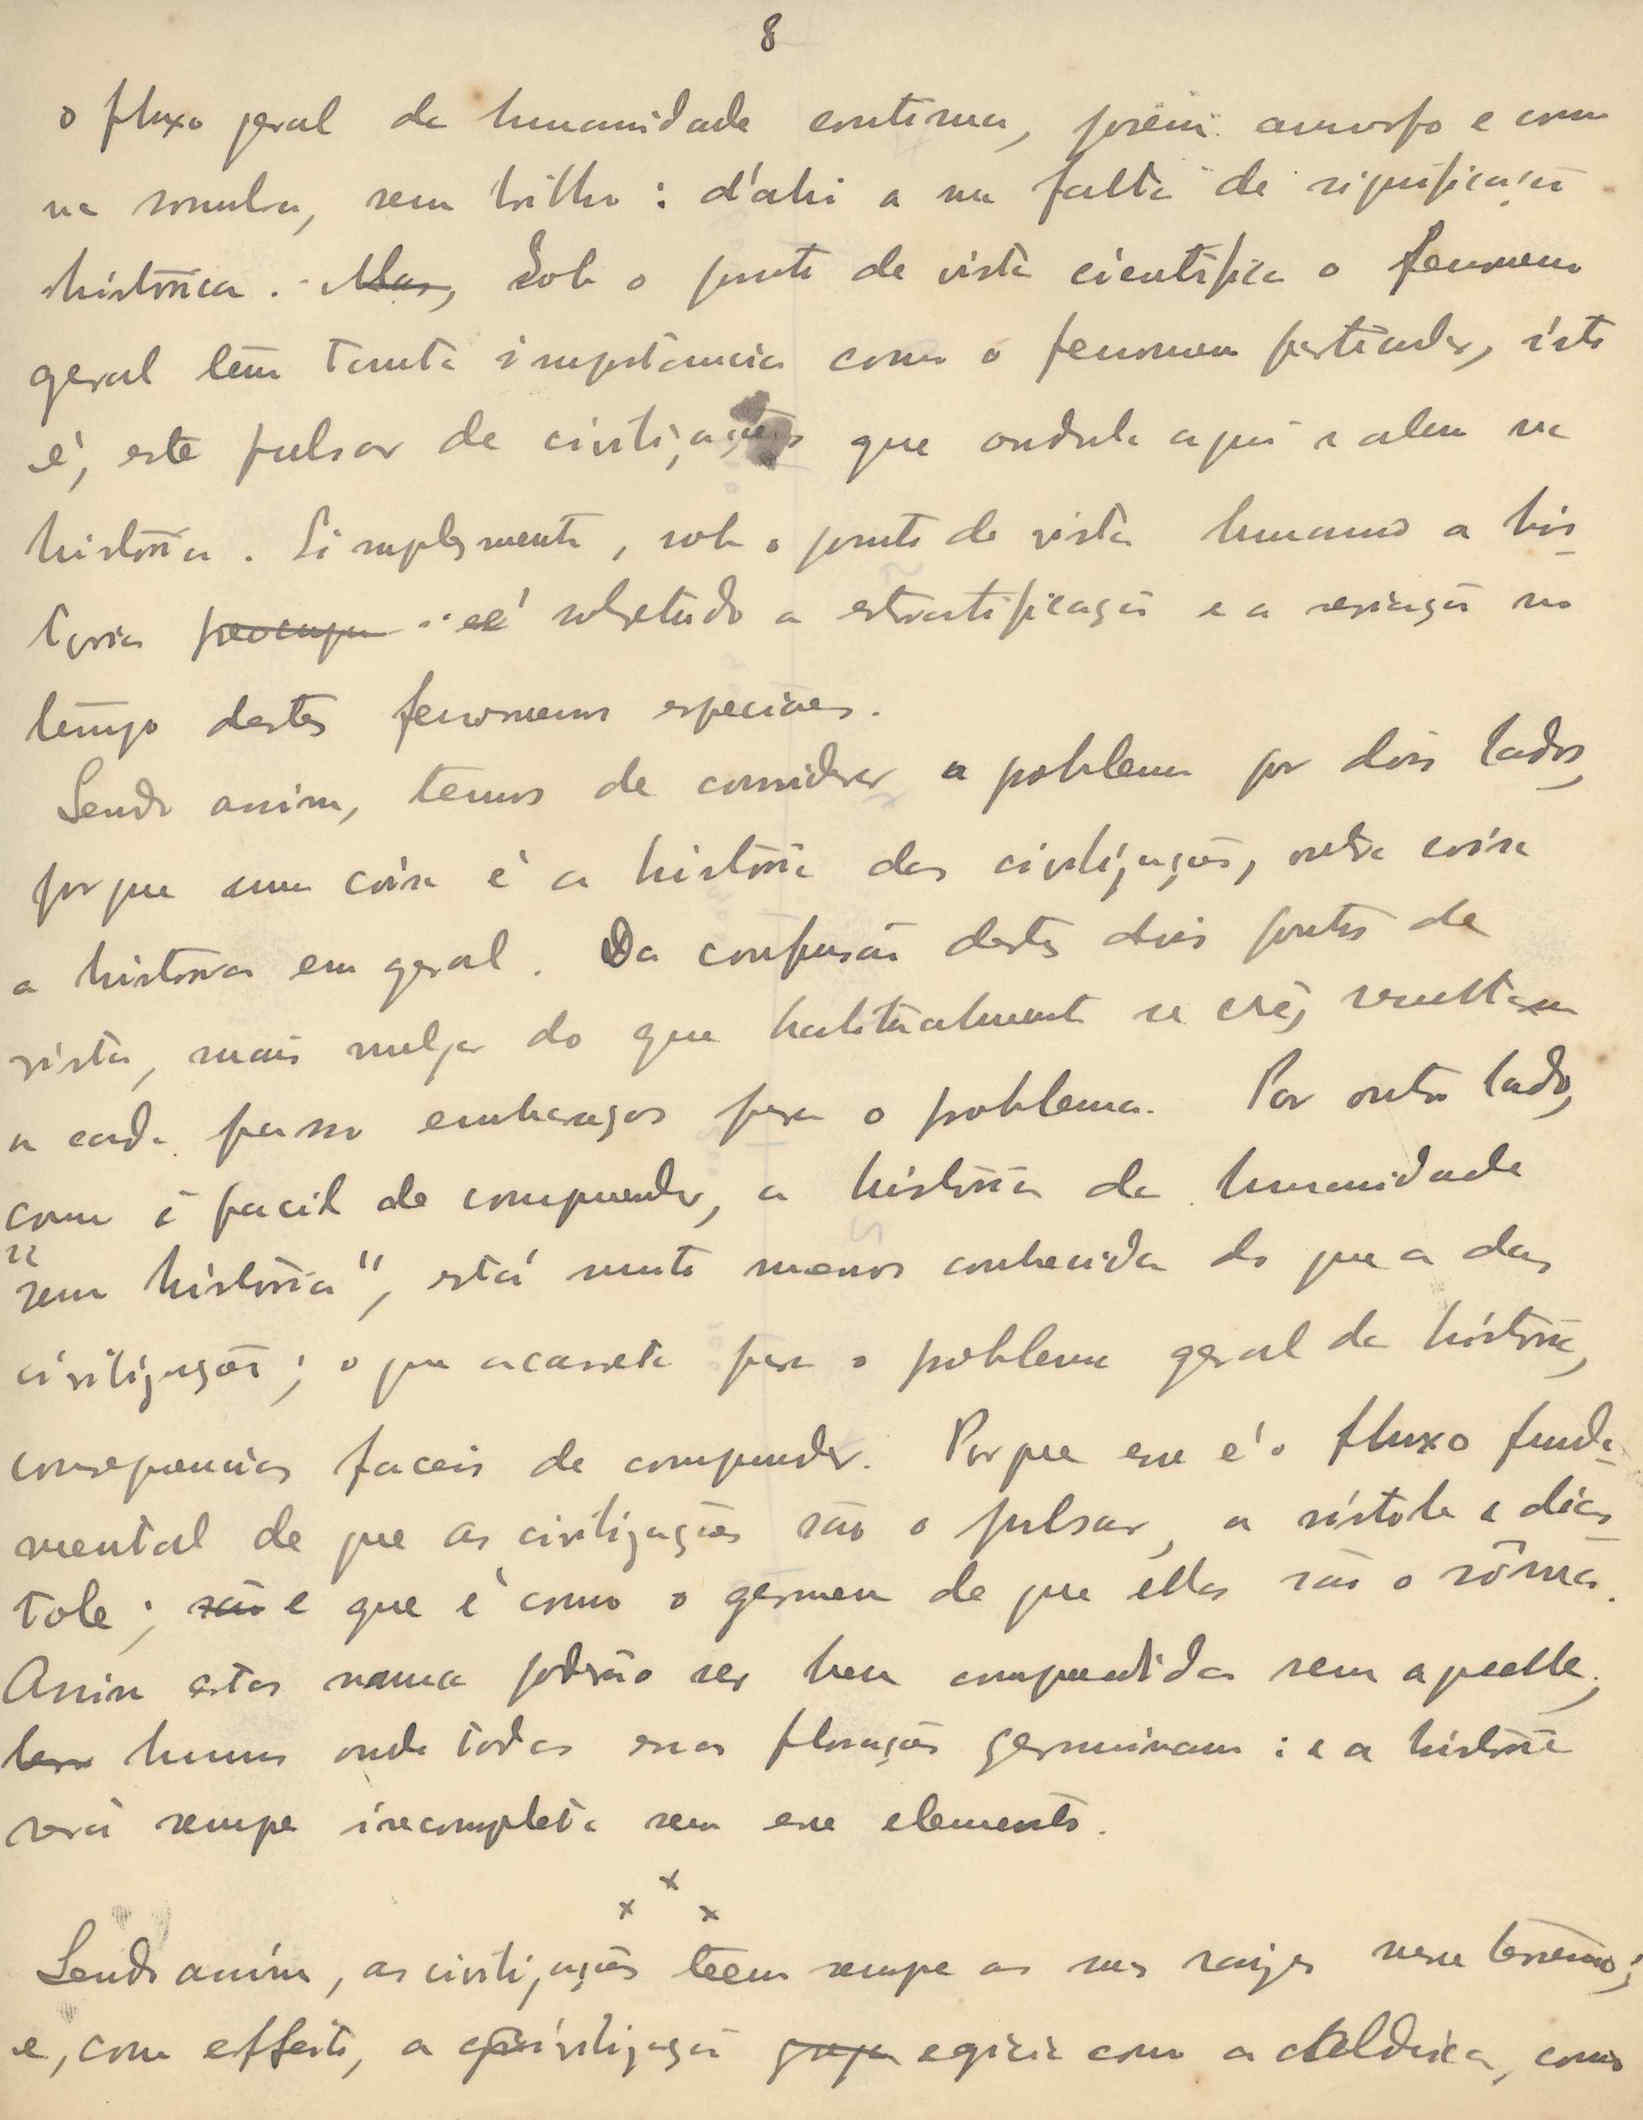 8
o fluxo geral da humanidade continua, porêm amorfo e como
na sombra, sem brilho : d'ahi a sua falta de significação
histórica. Mas, Sob o ponto de vista cientifico o fenomeno
geral têm tanta importancia como o fenomeno particular, isto
é, este pulsar de civilizações que ondula aqui e alem na
história. Simplesmente, sob o ponto de vista humano a his-
toria preocupa é sobretudo a estratificação e a seriação no
tempo destes fenomenos especiaes.
Sendo assim, temos de considerar o problema por dois lados,
porque uma coisa é a história das civilizações, outra coisa
a historia em geral. Da confusão destes dois pontos de
vista, mais vulgar do que habitualmente se crê, resultam
a cada passo embaraços para o problema. Por outro lado,
como é facil de compreender, a história da humanidade
"sem história", está muito menos conhecida do que a das
civilizações; o que acarreta para o problema geral da história,
consequencias faceis de compreender. Porque esse é o fluxo funda-
mental de que as civilizações são o pulsar, a sístole e diás-
tole; são e que é como o gérmen de que ellas são o sôma.
Assim estas nunca poderão ser bem compreendidas sem aquelle,
humus onde todas essas florações germinam : e a história
será sempre incompleta sem esse elemento.
x x x
Sendo assim, as civilizações têem sempre as suas raizes nesse terreno;
e, com effeito, a civilização egicia como a caldaica, como